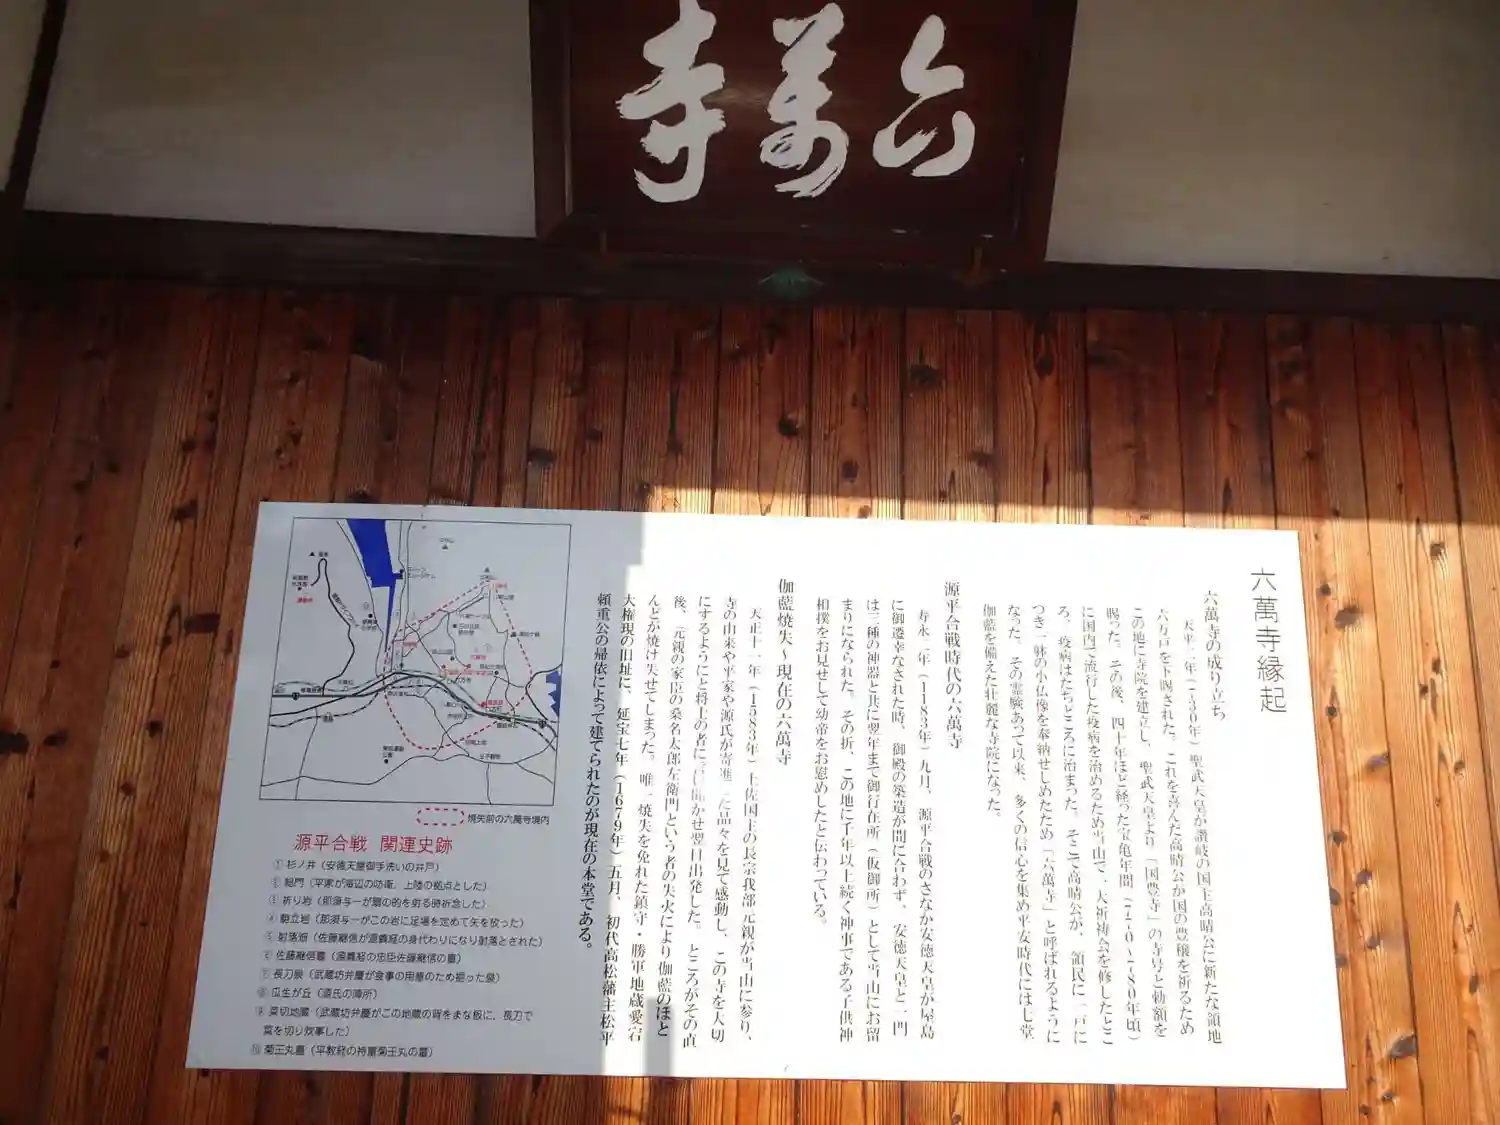 六萬寺
六萬寺縁起
六萬寺の成り立ち
天平二年(730年)聖武天皇が讃岐の国主高晴公に新たな領地
六万戸を下賜された。これを喜んだ高晴公が国の豊穣を祈るため
この地に寺院を建立し、聖武天皇より「国豊寺」の寺号と勅額を
賜った。その後、四十年ほど経った宝亀年間(770~780年頃)
に国内で流行した疫病を治めるため当山で、大祈祷会を修したとこ
ろ、疫病はたちどころに治まった。そこで高晴公が、領民に一戸に
つき一躰の小仏像を奉納せしめたため「六萬寺」と呼ばれるように
なった。その霊験あって以来、多くの信心を集め平安時代には七堂
伽藍を備えた壮麗な寺院になった。
源平合戦時代の六萬寺
寿永二年(1183年)九月、源平合戦のさなか安徳天皇が屋島
に御遷幸なされた時、御殿の築造が間に合わず、安徳天皇と一門
は三種の神器と共に翌年まで御行在所(仮御所)として当山にお留
まりになられた。その折、この地に千年以上続く神事である子供神
相撲をお見せして幼帝をお慰めしたと伝わっている。
伽藍焼失~現在の六萬寺
天正十一年(1583年)土佐国主の長宗我部元親が当山に参り、
寺の由来や平家や源氏が寄進した品々を見て感動し、この寺を大切
にするようにと将士の者に言い聞かせ翌日出発した。ところがその直
後、元親の家臣の桑名太郎左衛門という者の失火により伽藍のほと
んどが焼け失せてしまった。唯一焼失を免れた鎮守・勝軍地蔵愛宕
大権現の旧址に、延宝七年(1679年)五月、初代高松藩主松平
頼重公の帰依によって建てられたのが現在の本堂である。
焼失前の六萬寺境内
源平合戦 関連史跡
① 杉ノ井(安徳天皇御手洗いの井戸)
② 総門(平家が海辺の防衛、上陸の拠点とした)
③ 祈り岩(那須与一が扇の的を射る時祈念した)
④ 駒立岩(那須与一がこの岩に足場を定めて矢を放った)
⑤ 射落畑(佐藤継信が源義経の身代わりになり射落とされた)
⑥ 佐藤継信墓(源義経の忠臣佐藤継信の墓)
⑦ 長刀泉(武蔵坊弁慶が食事の用意のため掘った泉)
⑧ 瓜生が丘(源氏の陣所)
⑨ 菜切地蔵(武蔵坊弁慶がこの地蔵の背をまな板に、長刀で
菜を切り炊事した)
⑩ 菊王丸墓(平教経の侍童菊王丸の墓)